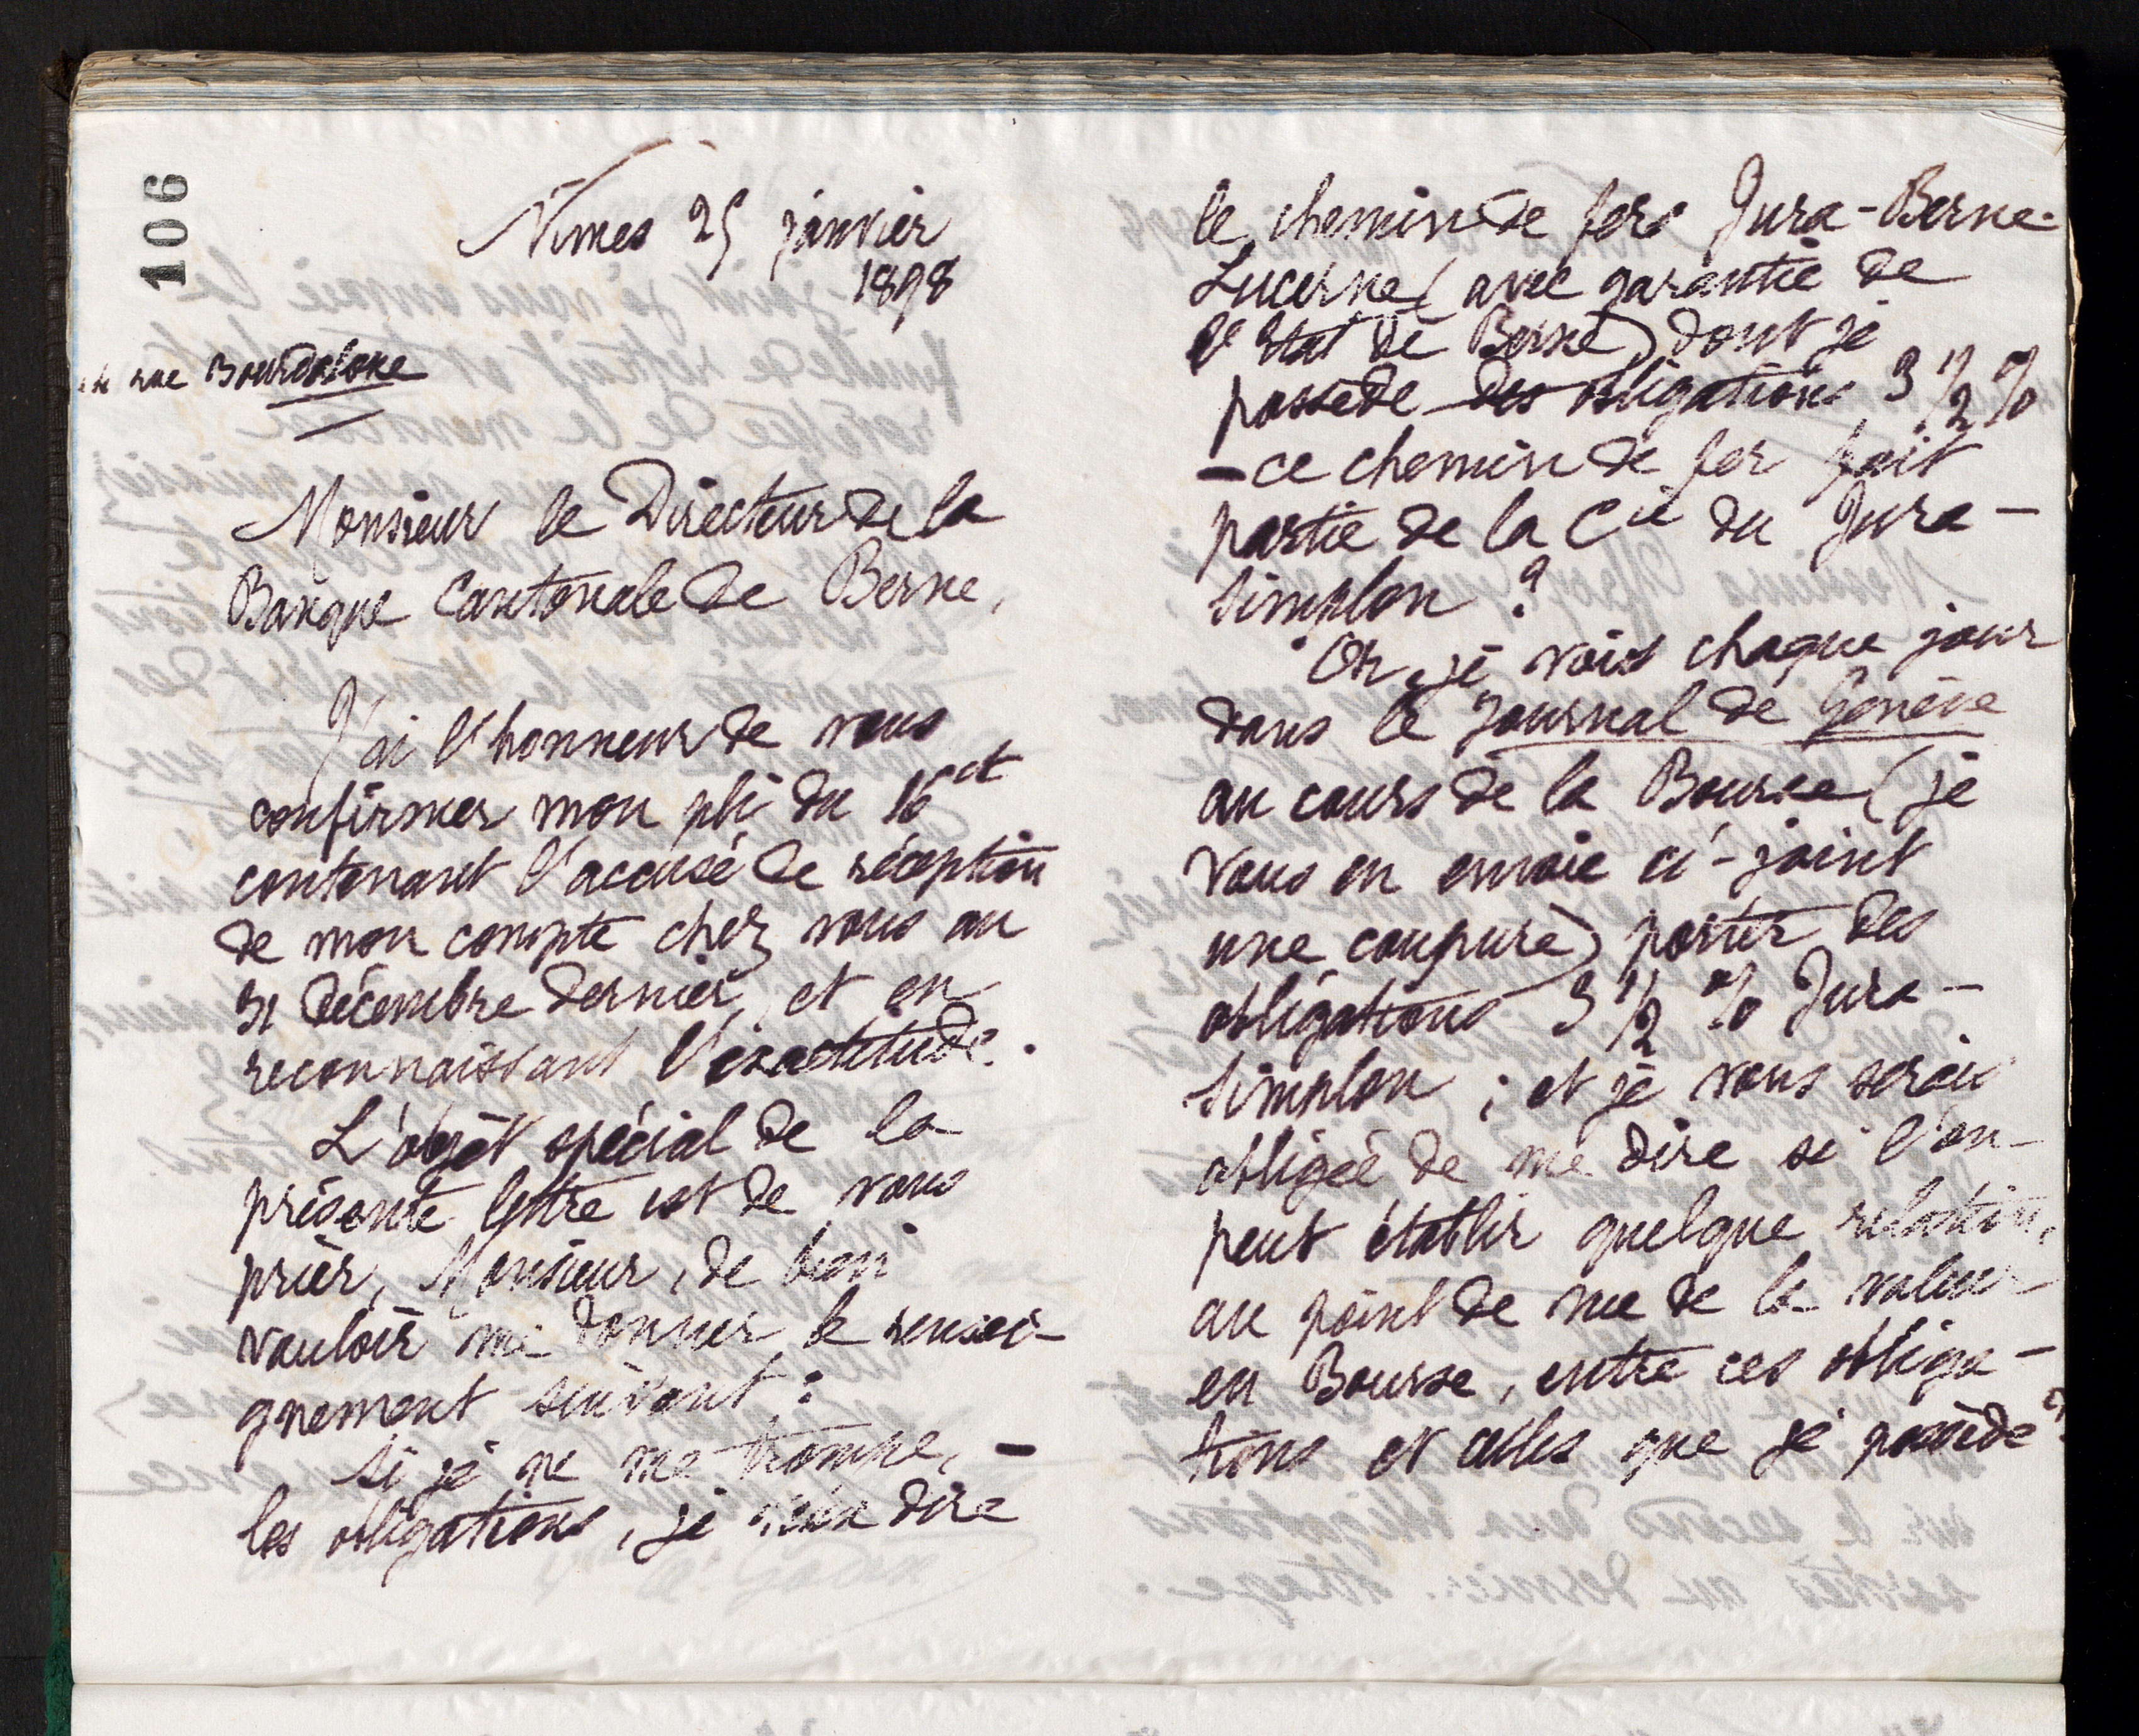 106
Nîmes 25 janvier
1898
rue Bourdaloue
Monsieur le Directeur de la
Banque Cantonale de Berne,
J'ai l'honneur de vous
confirmer mon pli du 16 ct
contenant l'accusé de réception
de mon compte chez vous au
31 décembre dernier, et en
reconnaissant l'exactitude.
L'objet spécial de la
présente lettre est de vous
prier, Monsieur, de bien
vouloir me donner le rensei-
gnement suivant :
Si je ne me trompe, —
les obligations, je veux dire
le chemin de fers Jura-Berne-
Lucerne (avec garantie de
l'Etat de Berne) dont je
possède des obligations 3 1/2 %
— ce chemin de fer fait
partie de la Cie du Jura-
Simplon ?
Or, je vois chaque jour
dans le Journal de Genève
au cours de la Bourse (je
vous en envoie ci-joint
une coupure) porter des
obligations 3 1/2 % Jura-
Simplon ; et je vous serais
obligée de me dire si l'on
peut établir quelque relation,
au point de vue de la valeur
en Bourse, entre ces obliga-
tions et celles que je possède ?